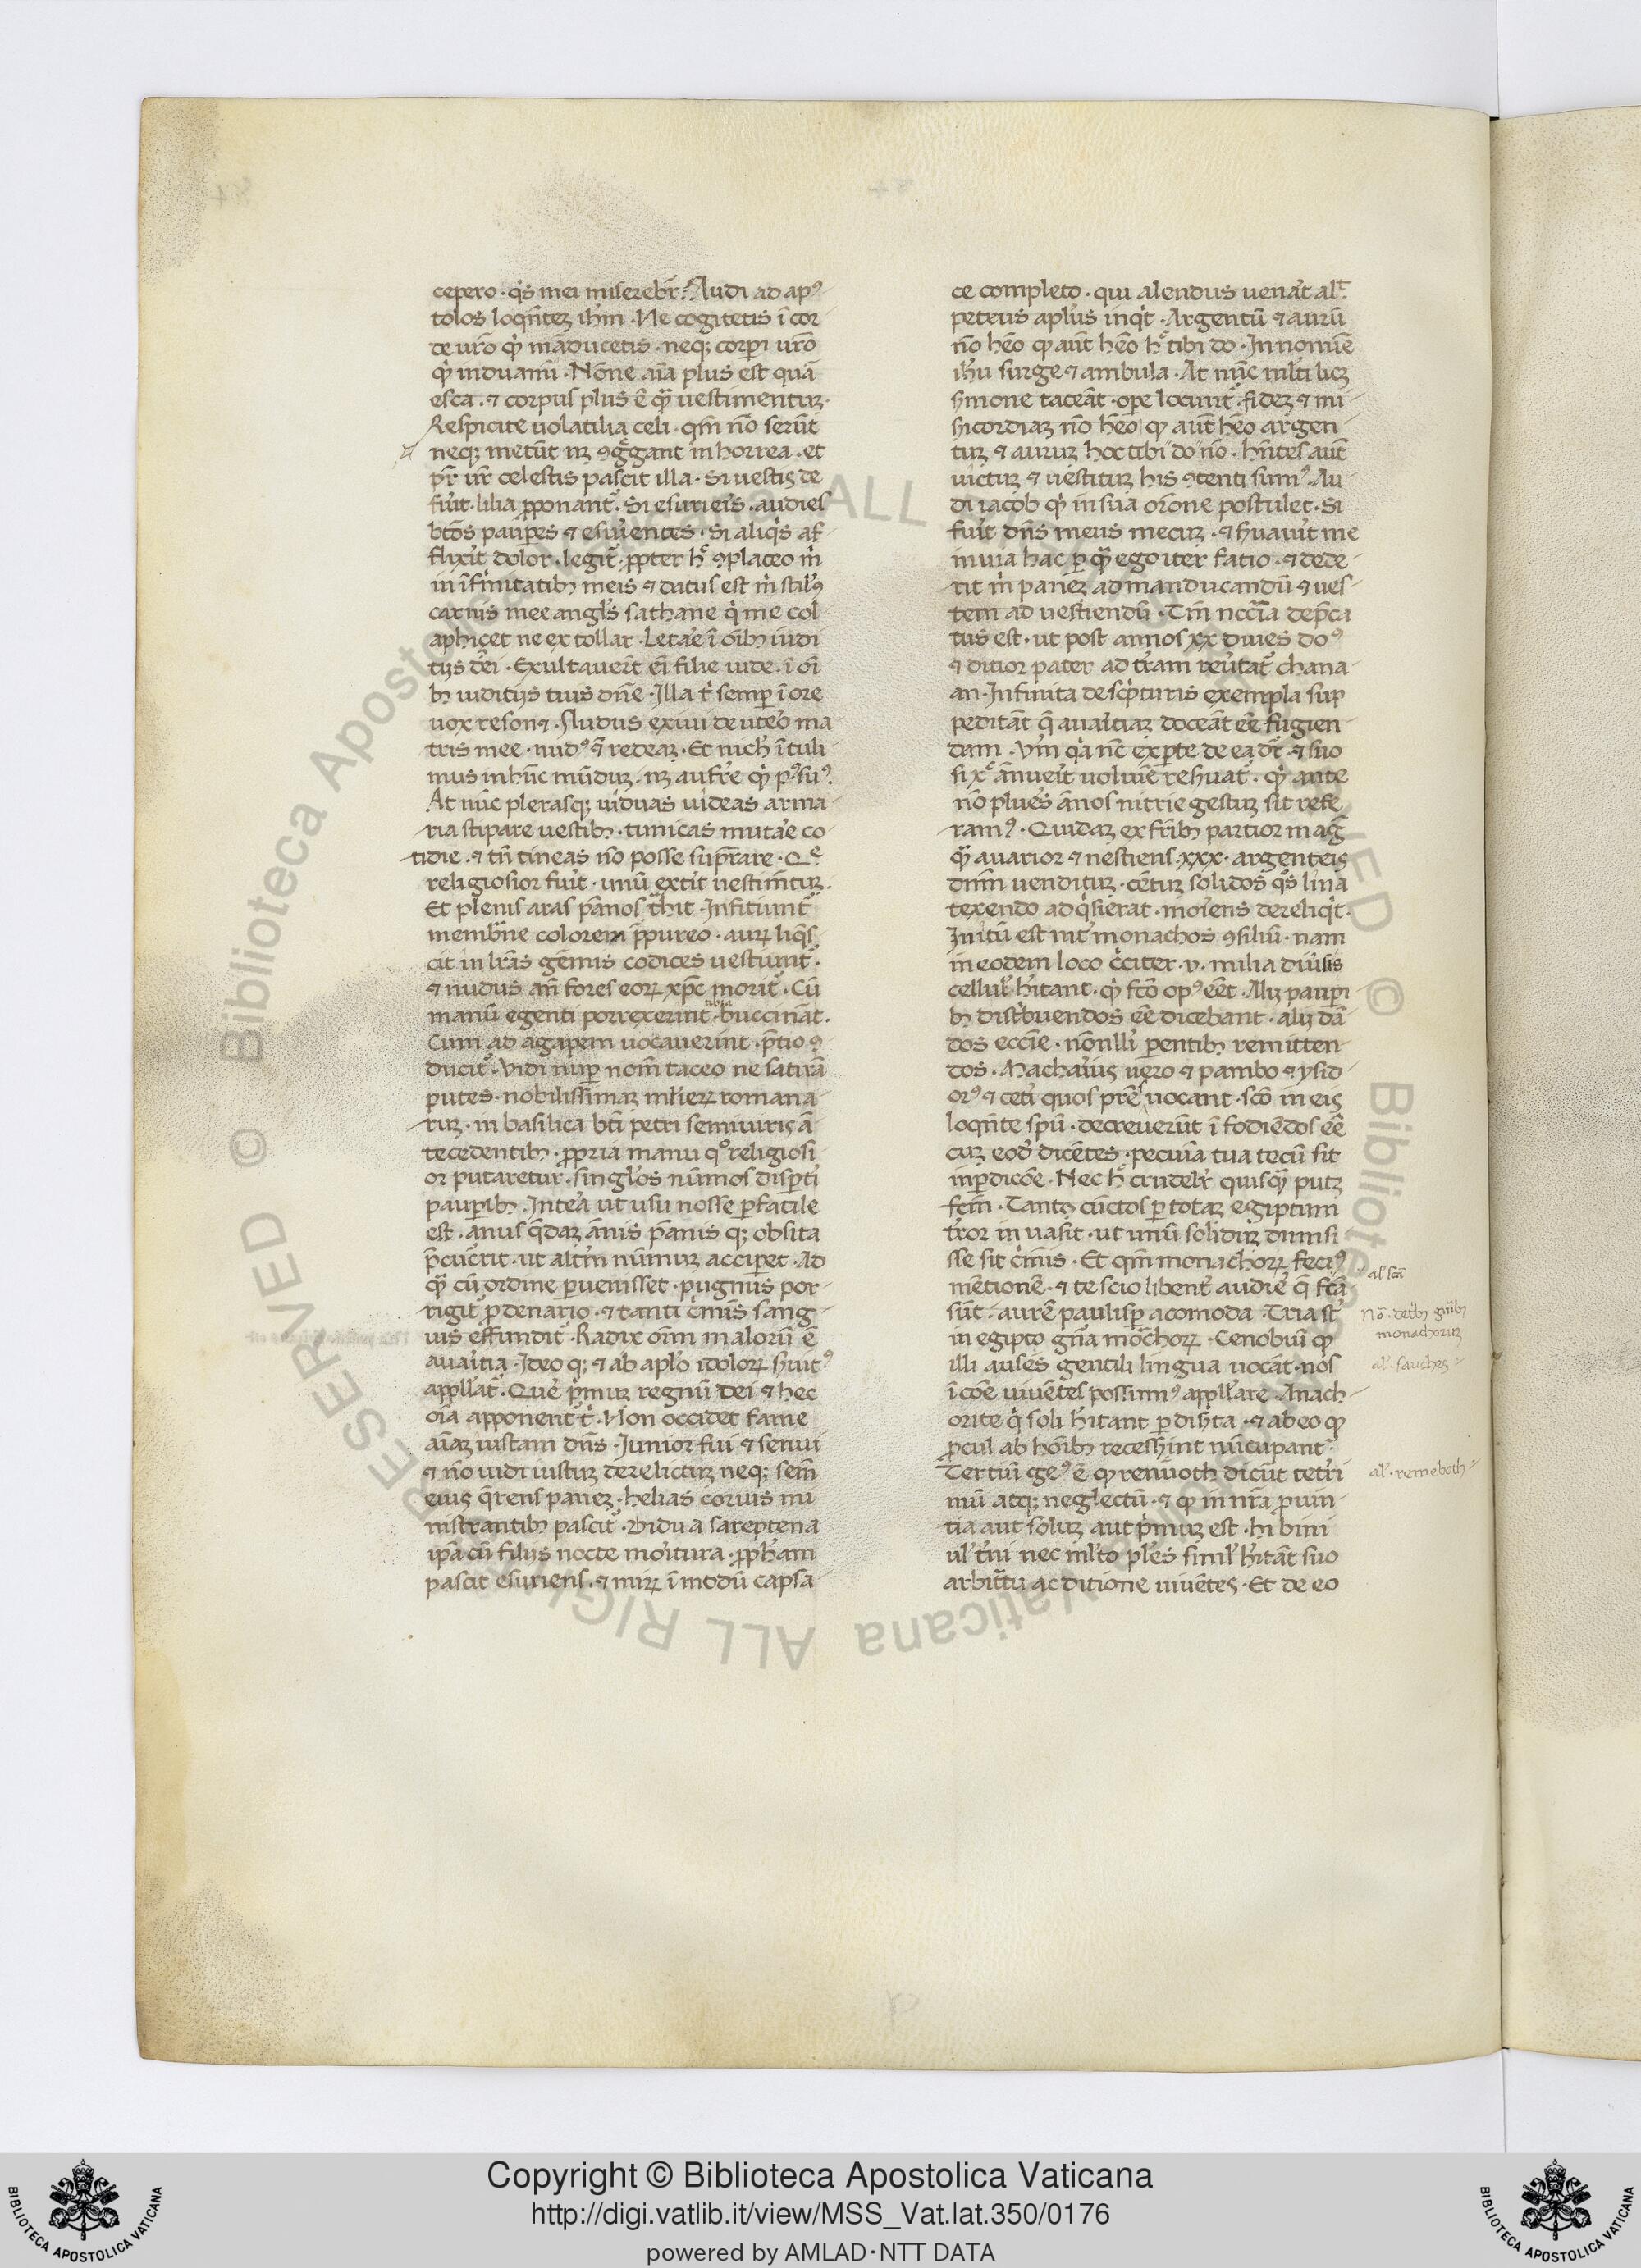 cepero · qͥs mei miserebr̄? Audi ad apꝰ
tolos loqn̄teꝫ ihm̄ · Ne cogitetis ī cor
de ur̄o qͥ māducetis · neqꝫ corꝑi ur̄o
qͥ induamī · Nōne aīa plus est quā
esca · ⁊ corpus plus ē qͣ uestimentuꝫ ·
Respicite uolatilia celi · qm̄ nō serūt
neqꝫ metūt nꝫ ꝯgͣgant in horrea · et
pr̄ ur̄ celestis pascit illa · Si uestis de
fuīt · lilia ꝓponant᷑ · Si esurieis · audies
btōs pauꝑes ⁊ esuͥentes · Si aliqͥs af
flixīt dolor · legit᷑ · ꝓpter hͦ ꝯplaceo m̄
in īfirmitatibꝫ meis ⁊ datus est m̄ stilꝰ
carnis mee angl̄s sathane qͥ me col
aphiçet ne extollar · Letar̄e ī oībꝫ iudi
tijs dēi · Exultauer̄t eī filie iude · ī oī
bꝫ iuditijs tuis dn̄e · Illa t̄ semꝑ ī ore
uox resonet · Nudus exiui de utēo ma
tris mee · nudꝰ ⁊ redeaꝫ · Et nich̄ ītuli
mus in hūc mūduꝫ · nꝫ aufr̄e qͥ pꝰsuꝰ.
At nūc plerasqꝫ uiduas uideas arma
ria stipare uestibꝫ · tunicas mutar̄e co
tidie · ⁊ tn̄ tineas nō posse suꝑare · Qͤ
religiosior fuīt · unū exīt uestim̄tuꝫ.
Et plenis aras pānos thīt · Infitiunt᷑
membr̄ne colorem ꝑpureo · auꝝ liqͥs
cit in lr̄as gēmis codices uestiunt᷑.
⁊ nudus an̄ fores eoꝝ xp̄c morit᷑ · Cū
manū egenti porrexerint buccināt.
Cum ad agapem uocauerint · p̄tio ꝯ
ducit᷑ · Vidi nuꝑ nom̄ taceo ne satirā
putes · nobilissimaꝫ mlīeꝝ romana
ruꝫ · in basilica btī petri semiuiris ā
tecedentibꝫ · ꝓpria manu qͦ religiosi
or putaretur · singl̄os nūmos disꝑti
pauꝑibꝫ · Inteā ut usu nosse ꝑfacile
est · anus qͣdaꝫ ānis pānis qꝫ obsita
p̄cucr̄it · ut altm̄ nūmuꝫ acciꝑet · Ad
qͣ cū ordine ꝑuenisset · pugnus por
rigit᷑ ꝓ denario · ⁊ tanti cͥmīs sang
uis effundit᷑ · Radix om̄ maloꝝū ē
auaͥtia · Ideo qꝫ ⁊ ab apl̄o idoloꝝ s̄uitꝰ
appll̄at᷑ · Quē pͥmuꝫ regnū dei ⁊ hec
oīa apponent᷑ tͥ · Non occidet fame
aīaꝫ iustam dn̄s · Junior fui ⁊ senui
⁊ nō uidi iustuꝫ derelictuꝫ neqꝫ sem̄
eius qͣrens paneꝫ · helias coruis mi
nistrantibꝫ pascit᷑ · Vidua sareptena
ip̄a cū filijs nocte moͥtura · ꝓph̄am
pascit esuriens · ⁊ miꝝ ī modū capsa
ce completo · qui alendus uenāt alt᷑.
petrus aplus inqͥt · Argentū ⁊ aurū
nō hēo qͦ aūt hēo hͦ tibi do · In nomīe
ihū surge ⁊ ambula · At nūc mlti licꝫ
s̄mone taceāt · oꝑe locunt᷑ · fideꝫ ⁊ mi
s̄icordiaꝫ nō hēo qͦ aūt hēo argen
tuꝫ ⁊ auruꝫ hoc tibi do nō · hn̄tes aūt
uictuꝫ ⁊ uestituꝫ his ꝯtenti sumꝰ · Au
di iacob qͥ in sua orōne postulet · Si
fuīt dn̄s meus mecuꝫ · ⁊ s̄uauīt me
in uia hac ꝑ qͣ ego iter fatio · ⁊ dede
rit m̄ paneꝫ ad manducandū ⁊ ues
tem ad uestiendū · Tm̄ nccīa dep̄ca
tus est · ut post annos xx diues doꝰ
⁊ ditior pater ad tr̄am reūtat᷑ chana
an · Infinita de scͥpturis exempla suꝑ
peditāt qͣ auaͥtiaꝫ doceāt eē fugien
dam · Vm̄ qͥa nc̄ ex ꝑte de ea dr̄ · ⁊ suo
si xͦ ānueīt uoluīe res̄uat᷑ · qͥ ante
nō plues ānos nitrie gestuꝫ sit refe
ramꝰ · Quidaꝫ ex fr̄ibꝫ partior magͣ
qͣ auarior ⁊ nestiens xxx · argenteis
dnm̄ uendituꝫ · cētuꝫ solidos qͦs lina
texendo adqͥsierat · moͥens dereliqͥt ·
Inītū est int̄ monachos ꝯsiliū · nam
in eodem loco cͥciter · v · milia diuīsis
cellul̄ hītant · qͥ fcō opꝰ eēt · Alij pauꝑi
bꝫ distͥbuendos eē dicebant · alij dā
dos eccīe · nōnlli ꝑentibꝫ remitten
dos · Machaͥus uero ⁊ pambo ⁊ ysid
orꝰ ⁊ cetͥ quos pr̄es uocant · scō in eis
loqn̄te spū · decreuerūt ī fodiēdos eē
cuꝫ eod̄ dicētes · pecuīa tua tecū sit
in ꝑdicōe · Nec hͦ crudelr̄ quisqͣ putꝫ
fcm̄ · Tanto cūctos ꝑ totaꝫ egiptum
tr̄or inuasit · ut unū soliduꝫ dimisi
sse sit cͥmīs · Et qm̄ monachoꝝ feciꝰ
mētionē · ⁊ te scio libent̄ audiē qͣ fctā
sūt · aurē paulisꝑ acomoda · Tria st̄
in egipto gn̄a mōchoꝝ · Cenobiū qͦ
illi auses gentili lingua uocāt · nos
ī cōe uiuētes possumꝰ appll̄are · Anach
orite qͥ soli hītant ꝑ dis̄ta · ⁊ ab eo qͦ
ꝓcul ab hoībꝫ recesserint nūcupant᷑.
Tertiū geꝰ ē qͦ renūoth dicūt tetrͥ
mū atqꝫ neglectū · ⁊ qͦ in nr̄a ꝓuin
tia aut soluꝫ aut pͥmuꝫ est · hi bini
ul̄ tͥni nec ml̄to ples simil̄ hītāt suo
arbitͥtu ac ditione uiuētes · Et de eo
al̄ scā
Nō · de tͥbꝫ gn̄ibꝫ
monachoruꝫ
al̄ · sauches
al̄ · remeboth
© Biblioteca Apostolica Vaticana ALL RIGHTS RESERVED
Copyright © Biblioteca Apostolica Vaticana
http://digi.vatlib.it/view/MSS_Vat.lat.350/0176
powered by AMLAD·NTT DATA
BIBLIOTECA APOSTOLICA VATICANA
BIBLIOTECA APOSTOLICA VATICANA